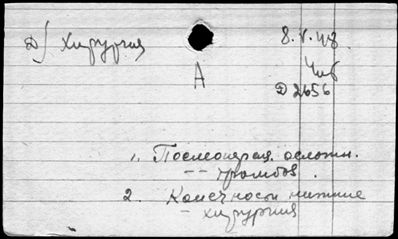 Д) хирургия
8.V.48
Чит
А
Д 2656
1. Послеоперац. осложн.
-- тромбоз.
2. Конечности нижние
- хирургия